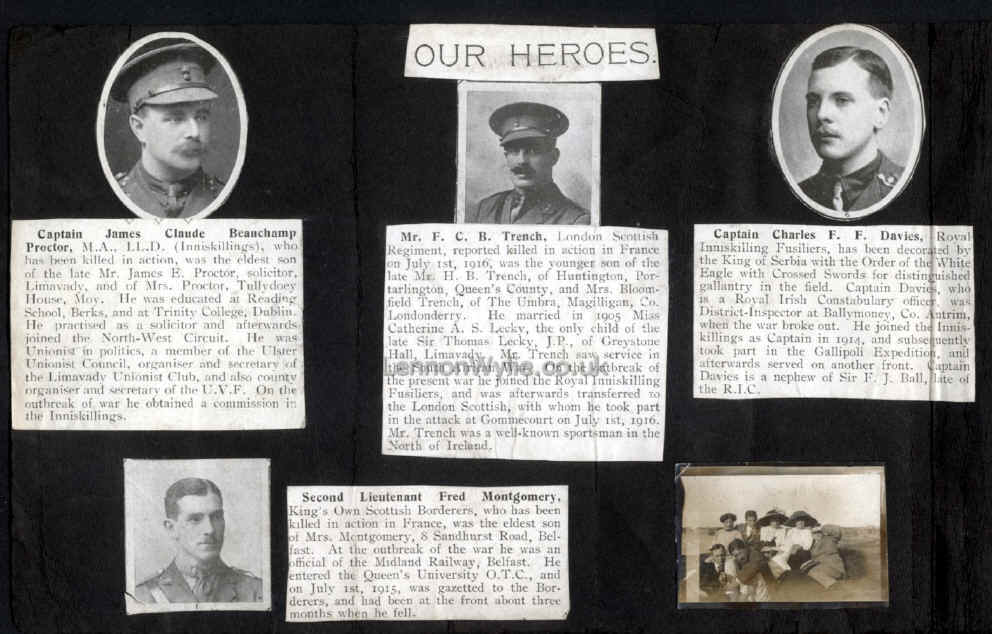 OUR HEROES.
Captain James Claude Beauchamp
Proctor, M.A., LL.D. (Inniskillings), who
has been killed in action, was the eldest son
of the late Mr. James E. Proctor, solicitor,
Limavady, and of Mrs. Proctor, Tullydoey
House, Moy. He was educated at Reading
School, Berks, and at Trinity College, Dublin.
He practised as a solicitor and afterwards
joined the North-West Circuit. He was
Unionist in politics, a member of the Ulster
Unionist Council, organiser and secretary of
the Limavady Unionist Club, and also county
organiser and secretary of the U.V.F. On the
outbreak of war he obtained a commission in
the Inniskillings.
Mr. F. C. B. Trench, London Scottish
Regiment, reported killed in action in France
on July 1st, 1916, was the younger son of the
late Mr. H. B. Trench, of Huntington, Por-
tarlington, Queen's County, and Mrs. Bloom-
field Trench, of The Umbra, Magilligan, Co.
Londonderry. He married in 1905 Miss
Catherine A. S. Lecky, the only child of the
late Sir Thomas Lecky, J.P., of Greystone
Hall, Limavady. Mr. Trench saw service in
outbreak of
the present war he joined the Royal Inniskilling
Fusiliers, and was afterwards transferred to
the London Scottish, with whom he took part
in the attack at Gommecourt on July 1st, 1916.
Mr. Trench was a well-known sportsman in the
North of Ireland.
LennonWylie.co.uk
Captain Charles F. F. Davies, Royal
Inniskilling Fusiliers, has been decorated by
the King of Serbia with the Order of the White
Eagle with Crossed Swords for distinguished
gallantry in the field. Captain Davies, who
is a Royal Irish Constabulary officer, was
District-Inspector at Ballymoney, Co. Antrim,
when the war broke out. He joined the Innis-
killings as Captain in 1914, and subsequently
took part in the Gallipoli Expedition, and
afterwards served on another front. Captain
Davies is a nephew of Sir F. J. Ball, late of
the R.I.C.
Second Lieutenant Fred Montgomery,
King's Own Scottish Borderers, who has been
killed in action in France, was the eldest son
of Mrs. Montgomery, 8 Sandhurst Road, Bel-
fast. At the outbreak of the war he was an
official of the Midland Railway, Belfast. He
entered the Queen's University O.T.C., and
on July 1st, 1915, was gazetted to the Bor-
derers, and had been at the front about three
months when he fell.